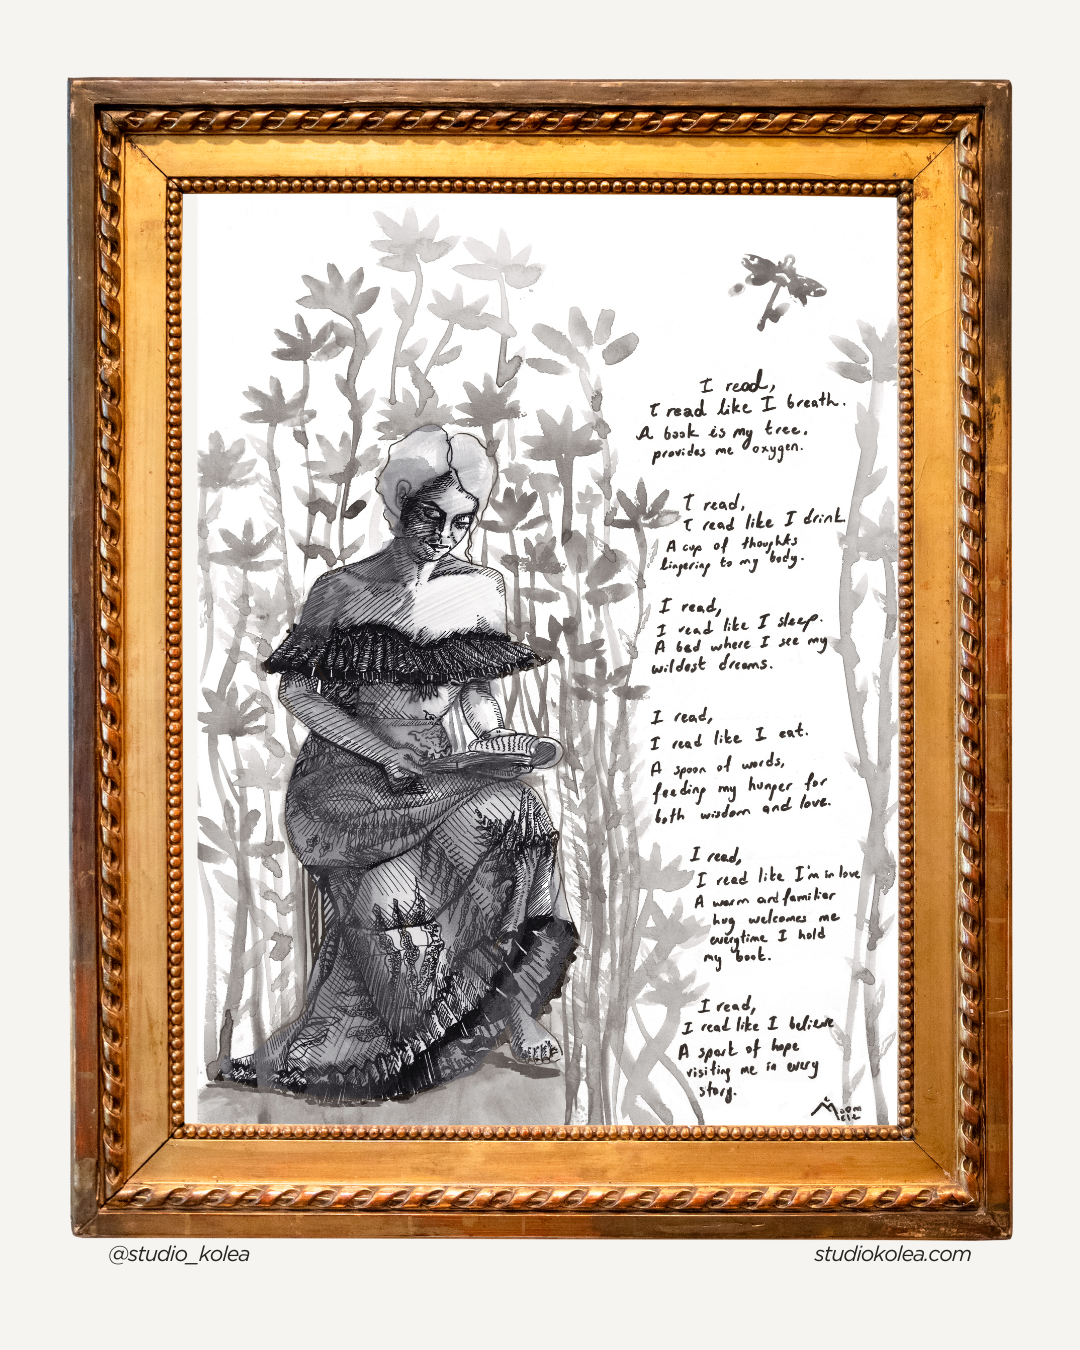 I read,
I read like I breath.
A book is my tree.
provides me oxygen.
I read,
I read like I drink
A cup of thoughts
lingering to my body.
I read,
I read like I sleep.
A bed where I see my
wildest dreams.
I read,
I read like I eat.
A spoon of words,
feeding my hunger for
both wisdom and love.
I read,
I read like I'm in love
A warm and familiar
hug welcomes me
everytime I hold
my book.
I read,
I read like I believe
A spart of hope
visiting me in every
story.
@studio_kolea
studiokolea.com